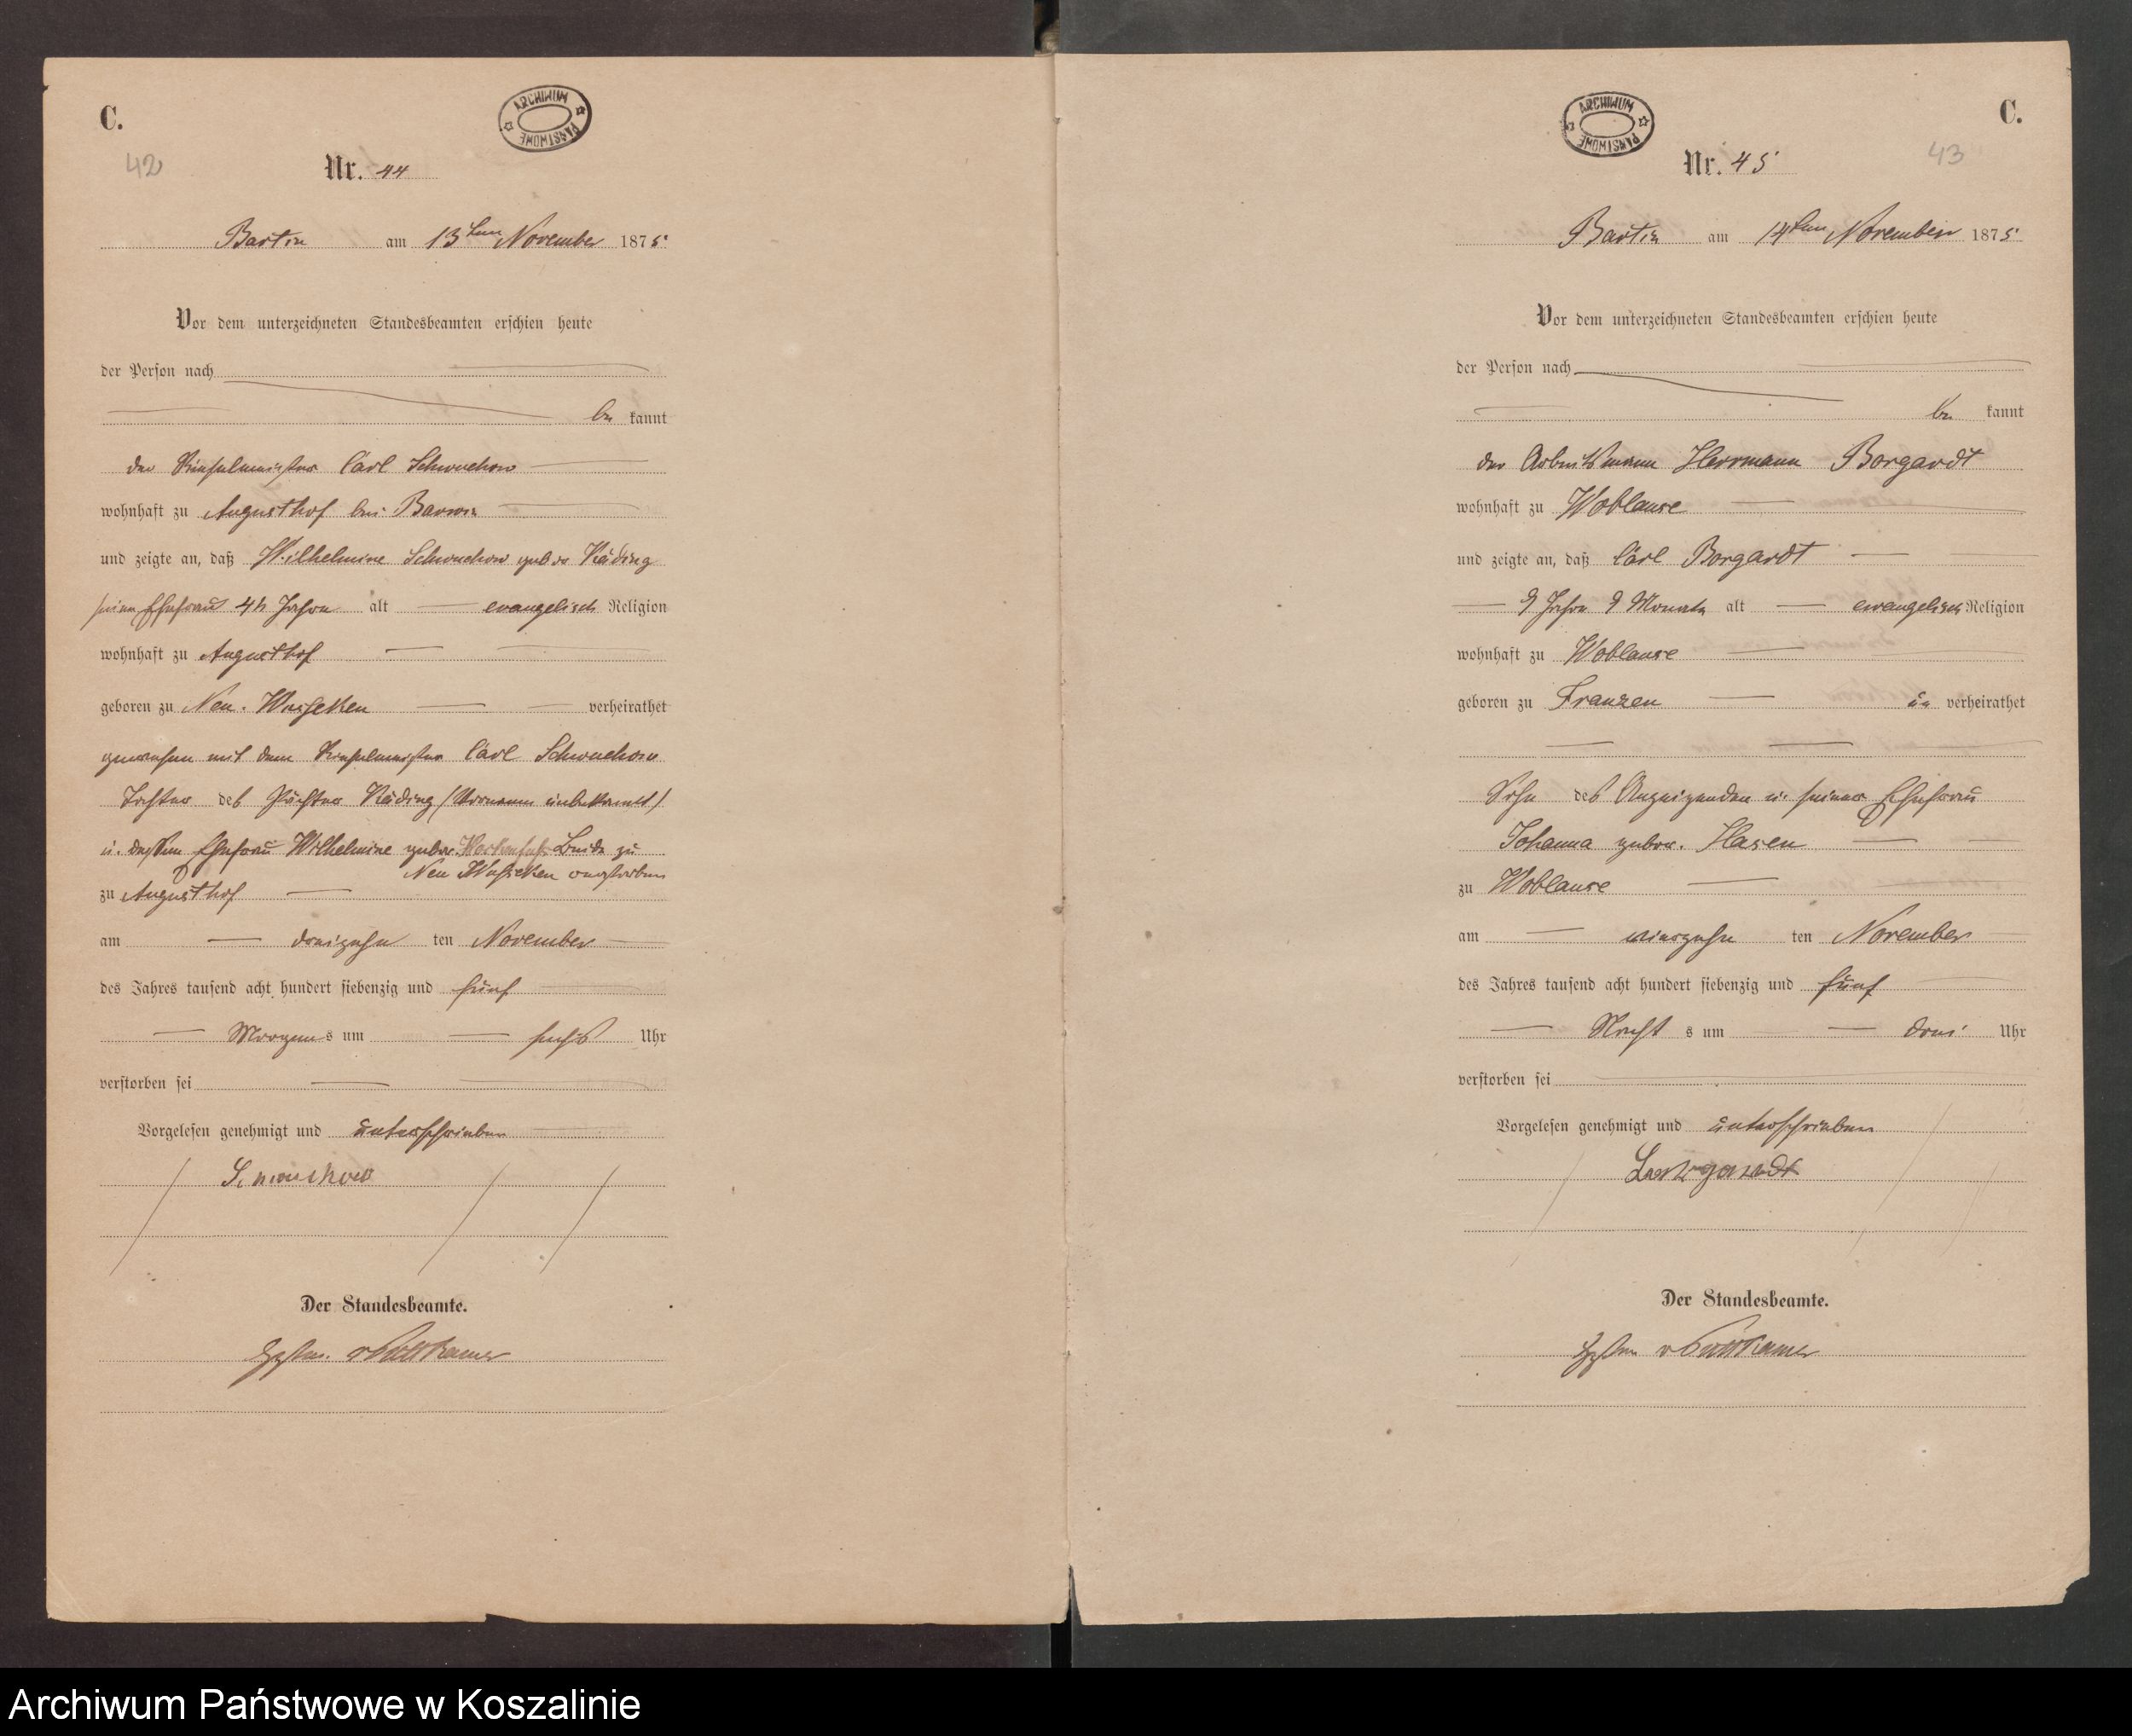 C.
42
ARCHIWUM PAŃSTWOWE
Nr. 44
Bartin am 13ten November 1875
Vor dem unterzeichneten Standesbeamten erschien heute
der Person nach
be kannt
der Ziegelmeister Carl Schwuchow
wohnhaft zu Augusthof bei Barvin
und zeigte an, daß Wilhelmine Schwuchow gebor Räding
seine Ehefrau Jahre alt evangelisch Religion
wohnhaft zu Augusthof
geboren zu Neu-Wusseken verheirathet
gewesen mit dem Ziegelmeister Carl Schwuchow
Tochter des Pächter Räding (Vornamen unbekannt)
u. dessen Ehefrau Wilhelmine gebor. Beide zu
Neu Wusseken verstorben
zu Augusthof
am dreizehn ten November
des Jahres tausend acht hundert siebenzig und fünf
Morgens um sechs Uhr
verstorben sei
Vorgelesen genehmigt und unterschrieben
Schwuchow
Der Standesbeamte.
v Puttkamer
C.
43
ARCHIWUM PAŃSTWOWE
Nr. 45
Bartin am 14ten November 1875
Vor dem unterzeichneten Standesbeamten erschien heute
der Person nach
be kannt
der Arbeitsmann Herrmann Borgardt
wohnhaft zu Woblanse
und zeigte an, daß Carl Borgardt
9 Jahre 9 Monate alt evangelisch Religion
wohnhaft zu Woblanse
geboren zu Franzen un verheirathet
Sohn des Anzeigenden u. seiner Ehefrau
Johanna gebor. Hasen
zu Woblanse
am vierzehn ten November
des Jahres tausend acht hundert siebenzig und fünf
Nacht s um drei Uhr
verstorben sei
Vorgelesen genehmigt und unterschrieben
Borgardt
Der Standesbeamte.
v Puttkamer
Archiwum Państwowe w Koszalinie